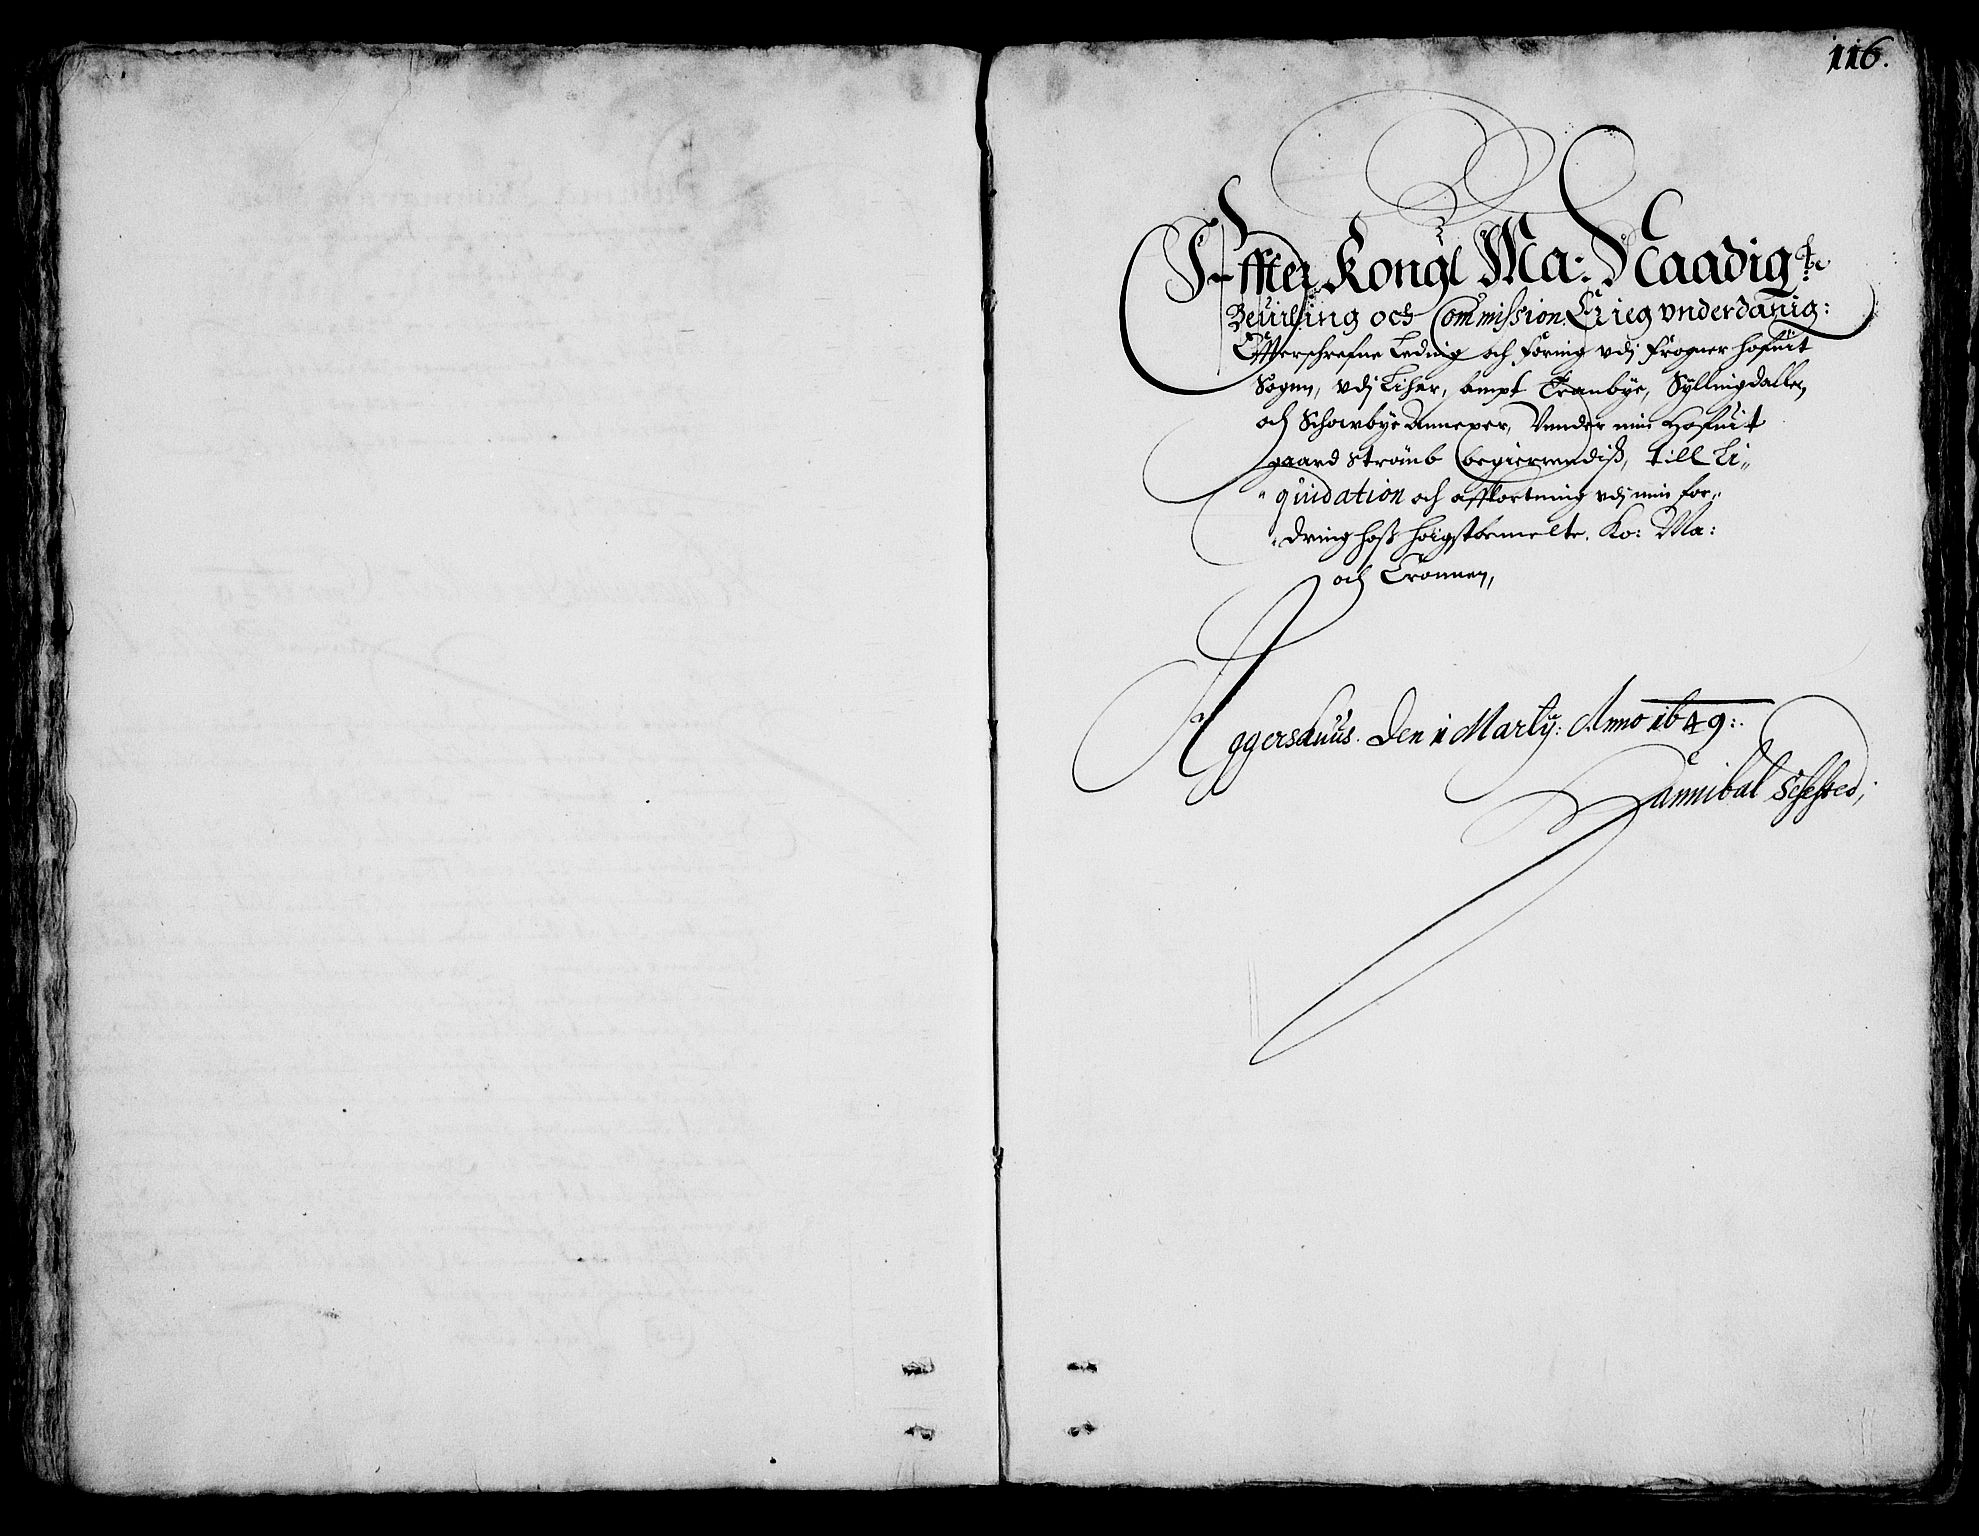 116.
Effter Kongl Ma: Naadigste
Beuilling och Commission Er ieg vnderdanig:
Effterschrefne Leding och Foring vdj Frogner hofuit
Sogen, vdj Liher, sampt Tranbye, Syllingdallen,
och Schovbye Annexer, Vnder min Hofuit
gaard Strömb begierendiß, till Li„
„quidation och affkortning vdj min for„
„dring hoß höigstbemelte. Ko: Ma:
och Cronnen,
Aggershuus. Den 1 Marty: Anno 1649:.
Hannibal Sehested,